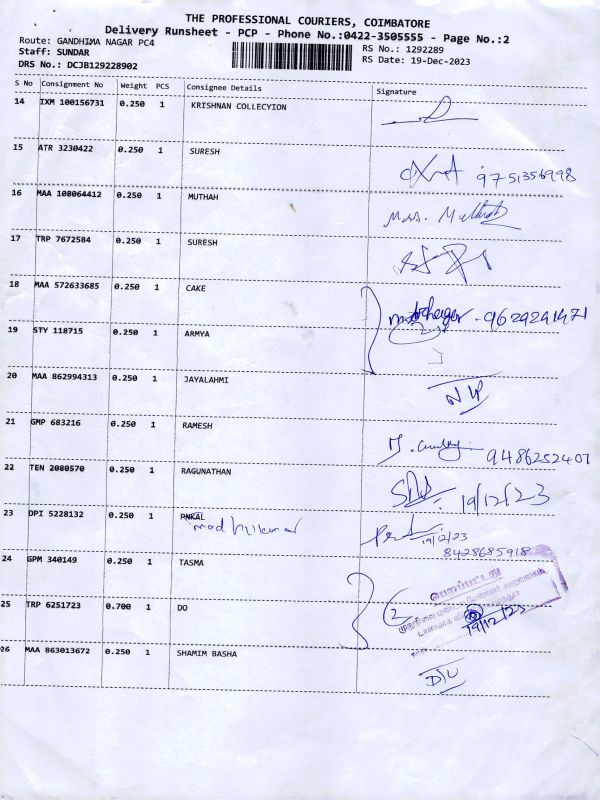 THE PROFESSIONAL COURIERS, COIMBATORE
Delivery Runsheet - PCP - Phone No.:0422-3505555 - Page No.:2
Route: GANDHIMA NAGAR PC4 RS No.: 1292289
Staff: SUNDAR RS Date: 19-Dec-2023
DRS No.: DCJB129228902
S No Consignment No Weight PCS Consignee Details Signature
14 IXM 100156731 0.250 1 KRISHNAN COLLECYION
15 ATR 3230422 0.250 1 SURESH 9751356998
16 MAA 108064412 0.250 1 MUTHAH
17 TRP 7672584 0.250 1 SURESH
18 MAA 572633685 0.250 1 CAKE 9629291471
19 STY 118715 0.250 1 ARMYA
20 MAA 862994313 0.250 1 JAYALAHMI
21 GMP 683216 0.250 1 RAMESH 9486252407
22 TEN 2080570 0.250 1 RAGUNATHAN 19/12/23
23 DPI 5228132 0.250 1
19/12/23
8428685918
24 GPM 340149 0.250 1 TASMA
பெறப்பட்டது
25 TRP 6251723 0.700 1 DO 2 19/12/23
26 MAA 863013672 0.250 1 SHAMIM BASHA